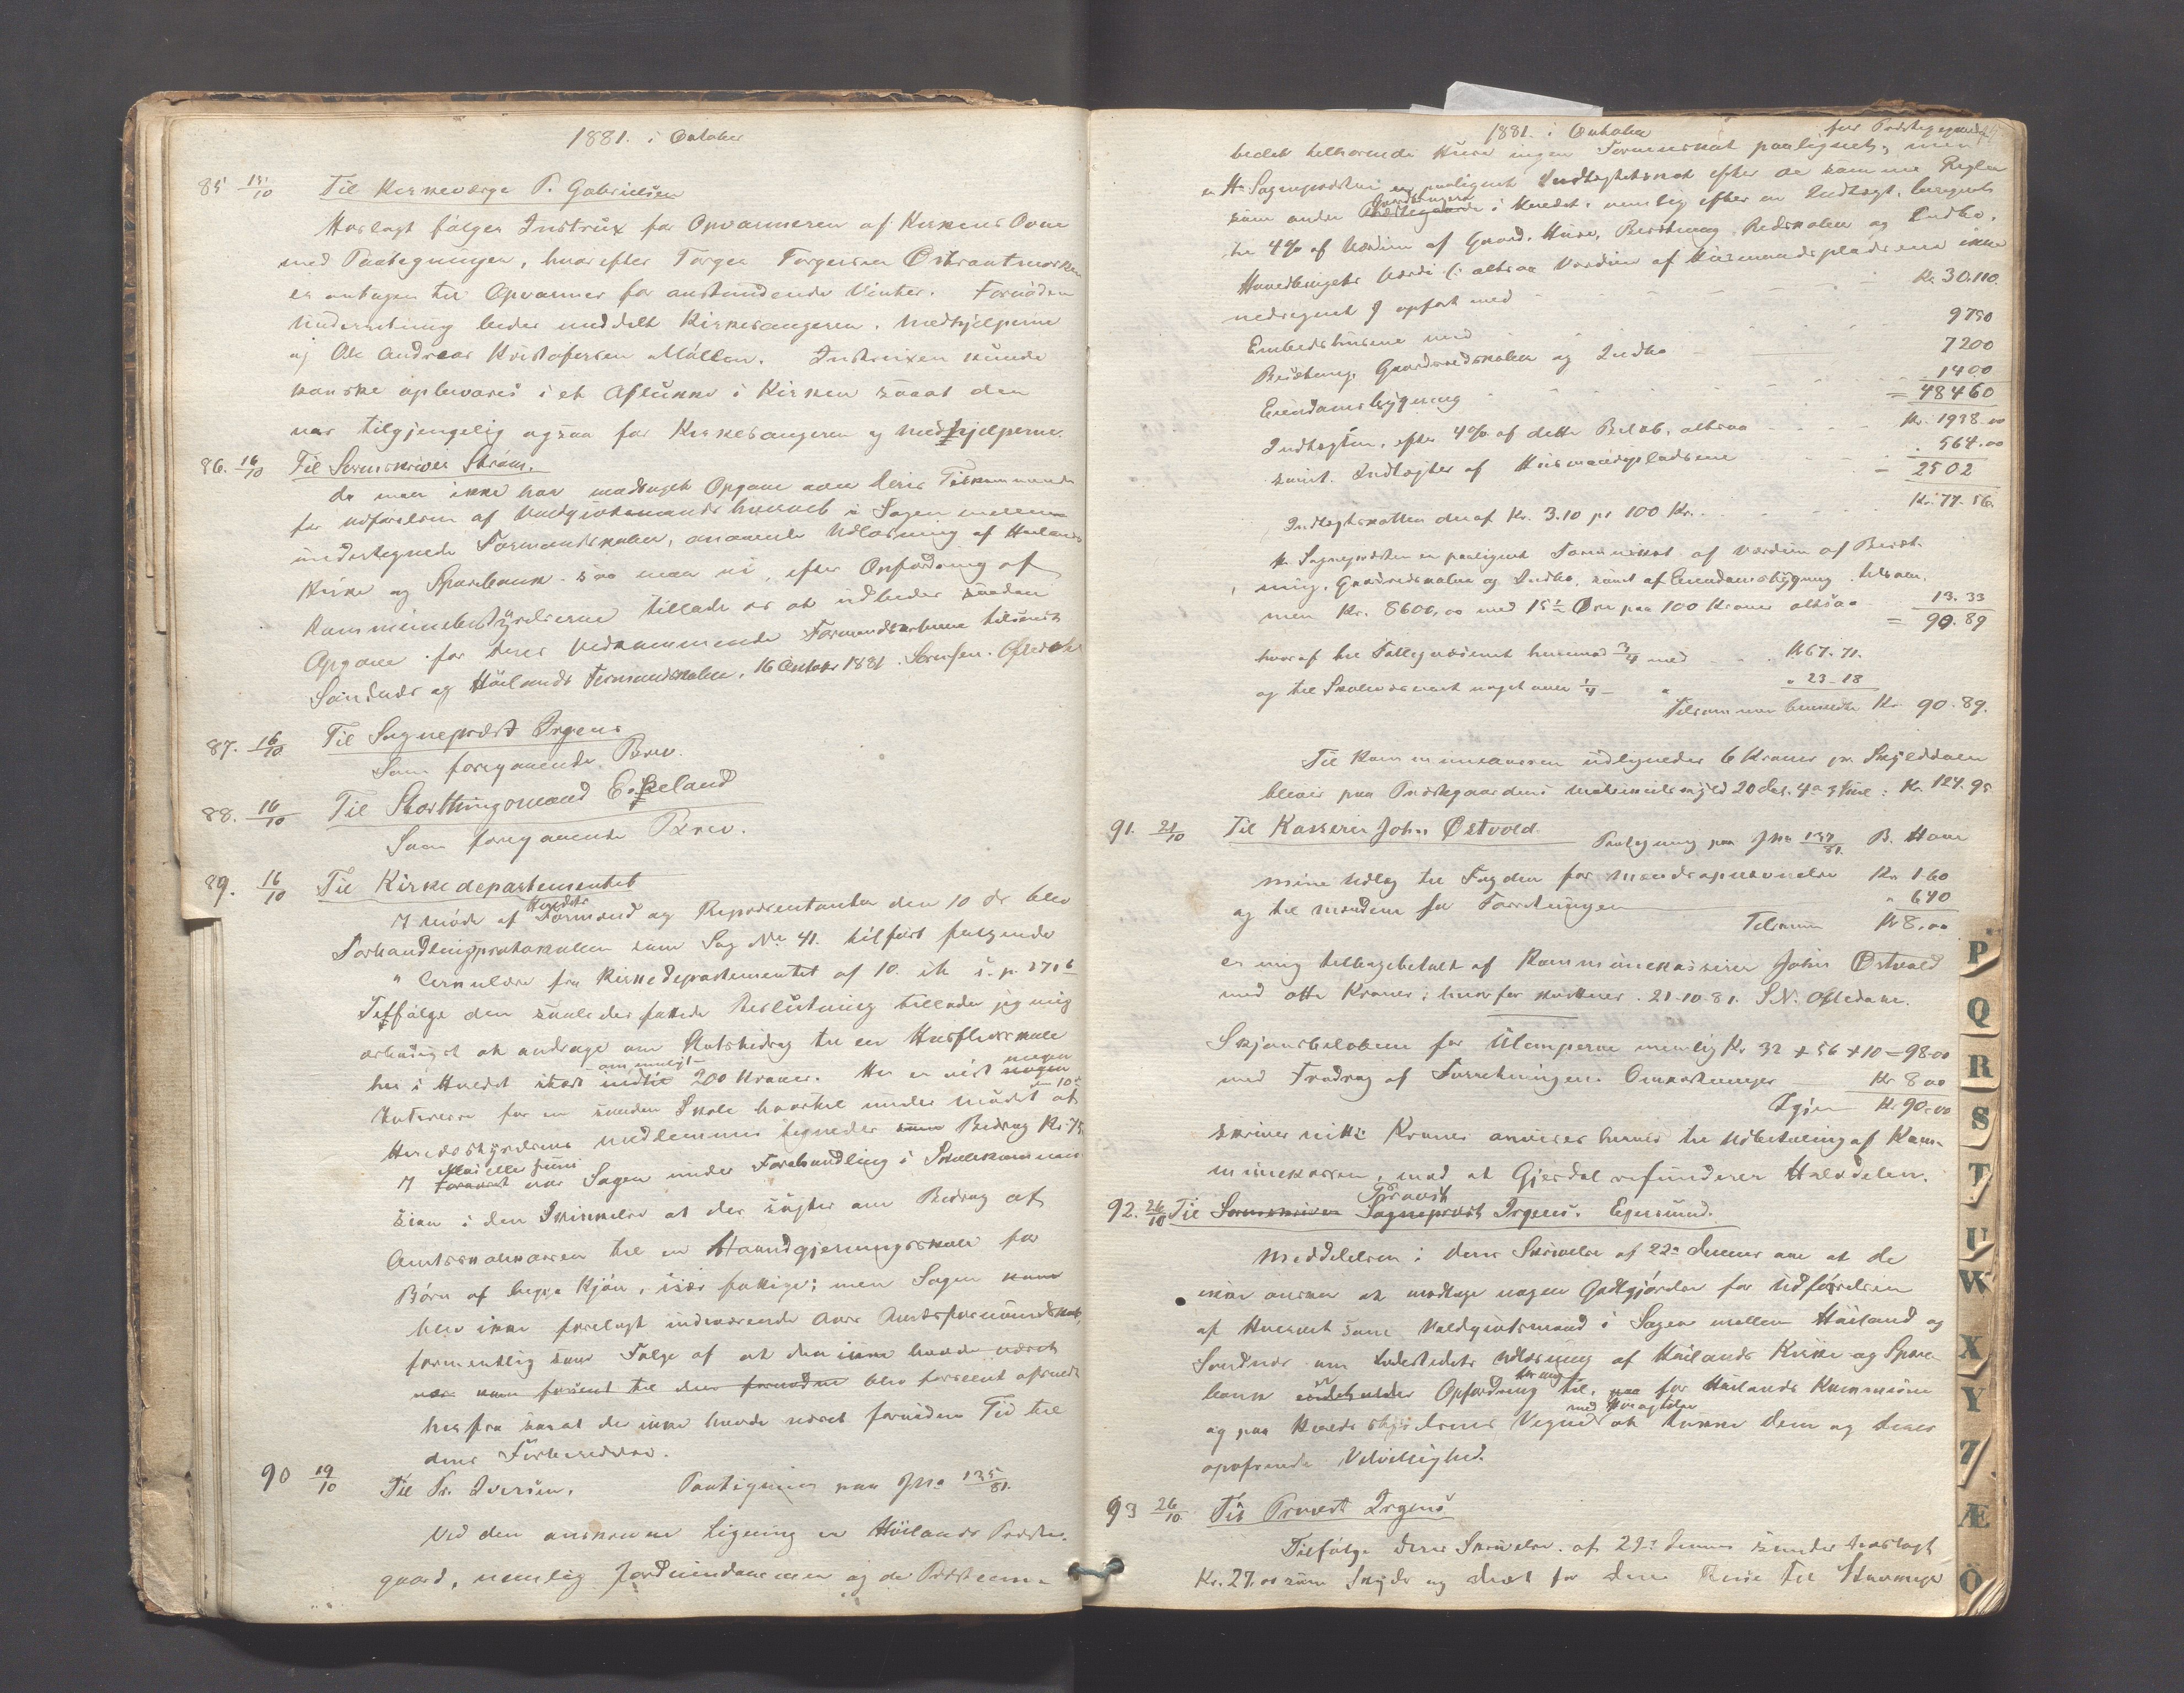 1881. i October
85 15/10 Til Kirkeværge P. Gabrielsen
Hoslagt følger Instrux for Opvarmeren af Kirkens Ovne
med Paategninger, hvorefter Torger Torgersen Østraatmarken
er antagen til Opvarmer for anstundende Vinter. Fornøden
Underretning bedes meddelt Kirkesangeren, Medhjelperne
og Ole Andreas Kristofersen Møllen. Instruxen kunde
kanske opbevares i et Aflukke i Kirken saaat den
var tilgjengelig ogsaa for Kirkesangeren og Medhjelperne.
86. 16/10 Til Sorenskriver Strøm.
Da man ikke har modtaget Opgave over Deres Tilkommende
for Udførelsen af Voldgiftsmandshvervet i Sagen mellem
undertegnede Formandskaber, angaaende Udløsning af Høilands
Kirke og Sparebank saa maa vi, efter Opfordring af
Kommunebestyrelserne tillade os at udbede saadan
Opgave for deres Vedkommende Formandskaberne tilsendt
Sandnæs og Høilands Formandskaber, 16 October 1881. Sørensen. Øglend
87. 16/10 Til Sogneprest Irgens
Som foregaaende Brev.
88. 16/10 Til Storthingsmand Eskeland
Som foregaaende Brev.
89. 16/10 Til Kirkedepartementet
I Møde af Herreds
Formænd og Repræsentanter den 10 ds blev
Forhandlingsprotokollen som Sag No 41. tilført følgende
" Cirkulære fra Kirkedepartementet af 10.
Tilfølge den saaledes fattede Beslutning tillader jeg mig
ærbødigst at andrage om Statsbidrag til en Husflidsskole
her i Herredet stort indtil om muligt 200 Kroner. Her er vist nogen megen
Interesse for en saadan Skole hvortil under Mødet 10de at
Herredsstyrelsens Medlemmer tegnedes som Bidrag Kr. 75
I Foraaret Mai eller Juni var Sagen under Forehandling i Skolekommis-
sion i den Skikkelse at der søgtes om Bidrag af
Amtsskolekassen til en Haandgjerningsskole for
Børn af begge Kjøn, især fattige; men Sagen kom
blev ikke forelagt indeværende Aars Amtsformandskab,
formentlig som Følge af at den ikke havde været
var kom forsent til den fornødne blev forseent afsendt
herfra saaat der ikke havde været fornøden Tid til
dens Forberedelse.
90 19/10 Til Pr. Iversen. Paategning paa JNo 135/81.
Ved den anskrevne Ligning er Høilands Præste-
gaard, nemlig Jordeiendommen og de Præsteem-
1881. i October
for Præstegaard
bedet tilhørende Huse ingen Formueskat paalignet, men
er Hr Sogneprästen er paalignet Indtægtsskat efter de samme Regler
som andre Præstegaarde Gaardbrugere i Herredet, nemlig efter en Indtægt, beregnet
til 4% af Værdien af Gaard, Huse, Besætning Redskaber og Indbo.
Hovedbrugets Værdi (: altsaa Værdien af Husmandspladsene ikke
medregnet) opført med Kr. 30.110
Embedshusene med 9750
Besætning, Gaardsredskaber og Indbo 7200
Eiendomsbygning 1400
= 48460
Indtægten, efter 4% af dette Beløb, altsaa Kr. 1938.00
samt Indtægter af Husmandspladsene 564.00
= 2502
Indtægtsskatten deraf Kr. 3.10 pr 100 Kr. Kr. 77.56
Hr. Sogneprästen er paalignet Formueskat af Værdien af Besæt-
ning, Gaardsredskaber og Indbo, samt af Eiendomsbygning tilsam-
men Kr. 8600,00 med 15½ Øre paa 100 Kroner altsaa 13.33
= 90.89
hvoraf til Fattigvæsenet henimod ¾ med Kr 67.71.
og til Skolevæsenet noget over ¼ - " " 23-18
Tilsammen benævnte Kr. 90.89.
Til Kommunekassen udlignedes 6 Kroner pr Skylddaler
blevet paa Præstegaardens Matrikulskyld 20 dal. 4 ort 3 skil: Kr. 124.95
91. 21/10 Til Kasserer John Østvold. Paategning paa JNo 137/81. B. Haver
mine Udlæg til Fogden for Mandsopnævnelse Kr. 1.60
og til Mændene for Forretningen " 6.40
Tilsammen Kr 8,00
er mig tilbagebetalt af Kommunekasserer John Østvold
med otte Kroner; hvorfor kvitteres. 21-10-81. S.N. Øglend.
Skjønsbeløbene for Ulemperne nemlig Kr 32 + 56 + 10 = 98.00
med Fradrag af Forretningens Omkostninger Kr 8 00
Igjen Kr. 90.00
skriver nitti Kroner anvises herved til Udbetaling af Kom-
munekassen, mod at Gjesdal refunderer Halvdelen.
92. 26/10 Til Sorenskriver Sogneprest Provst Irgens. Egersund.
Meddelelsen i Deres Skrivelse af 22de dennes om at De
ikke ønsker at modtage nogen Godtgjørelse for Udførelsen
af Hvervet som Voldgiftsmand i Sagen mellem Høiland og
Sandnæs om Ladestedets Udløsning af Høilands Kirke og Spare-
bank indeholder er Opfordring for mig til, paa for Høilands Kommune
og paa Herredsstyrelsens Vegne med Høiagtelse at takke Dem og Deres
opofrende Velvillighed.
93 26/10 Til Provst Irgens
Tilfølge Deres Skrivelse af 22de dennes sendes hoslagt
Kr. 27.00 som Skyds og Diæt for Deres Reise til Stavanger
P
Q
R
S
T
U
W
X
Y
Z
Æ
Ö